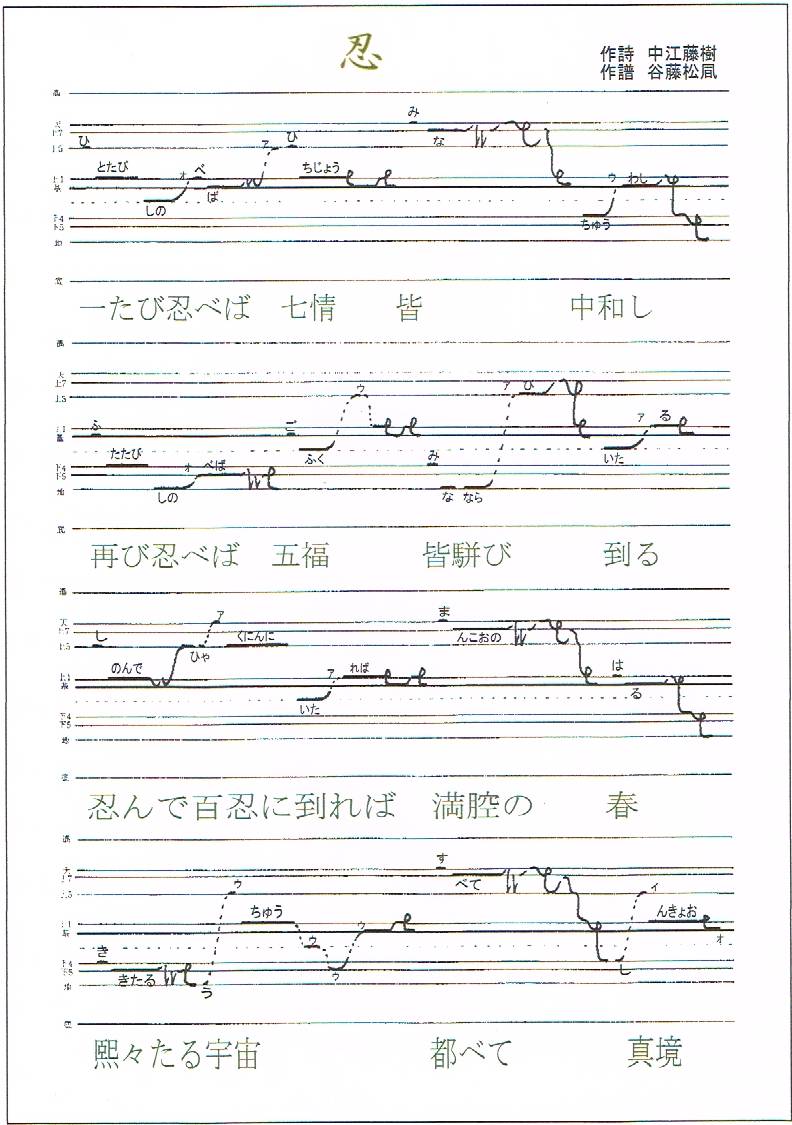 忍
作詩 中江藤樹
作譜 谷藤松凬
ひ とたび しの オ べ ば ア ひ ちじょう み な ちゅう ウ わし
一たび忍べば 七情 皆 中和し
ふ たたび しの オ べば ご ふく ウ み な なら ア ひ いた ア る
再び忍べば 五福 皆駢び 到る
し のんで ひゃ ア くにんに いた ア れば ま んこおの は る
忍んで百忍に到れば 満腔の 春
き きたる う ウ ちゅう ウ ウ ウ す べて し イ んきょお オ
熙々たる宇宙 都べて 真境